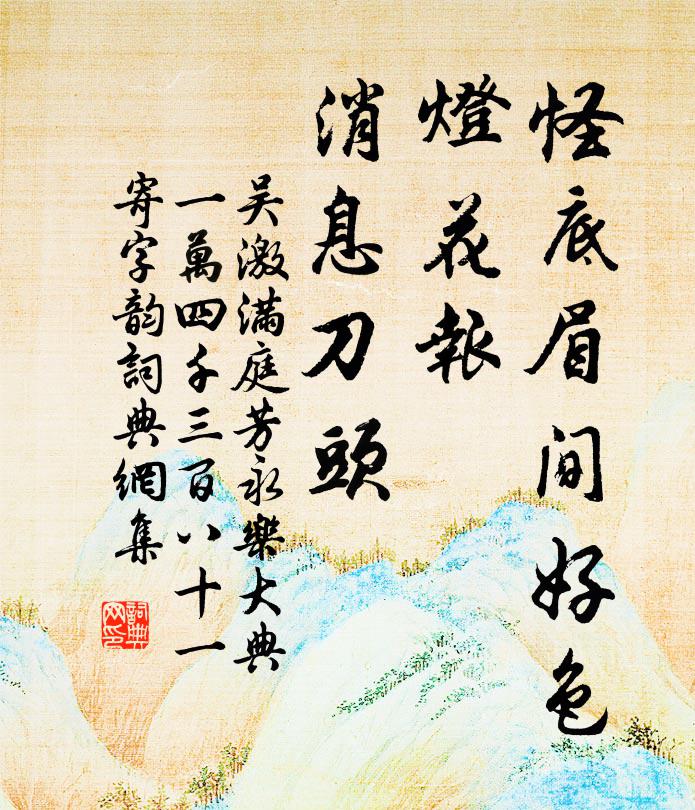 怪底眉間好色
燈花報
消息刀頭
吴激滿庭芳永樂大典
一萬四千三百八十一
寄字韵詞典網集
詞典網印